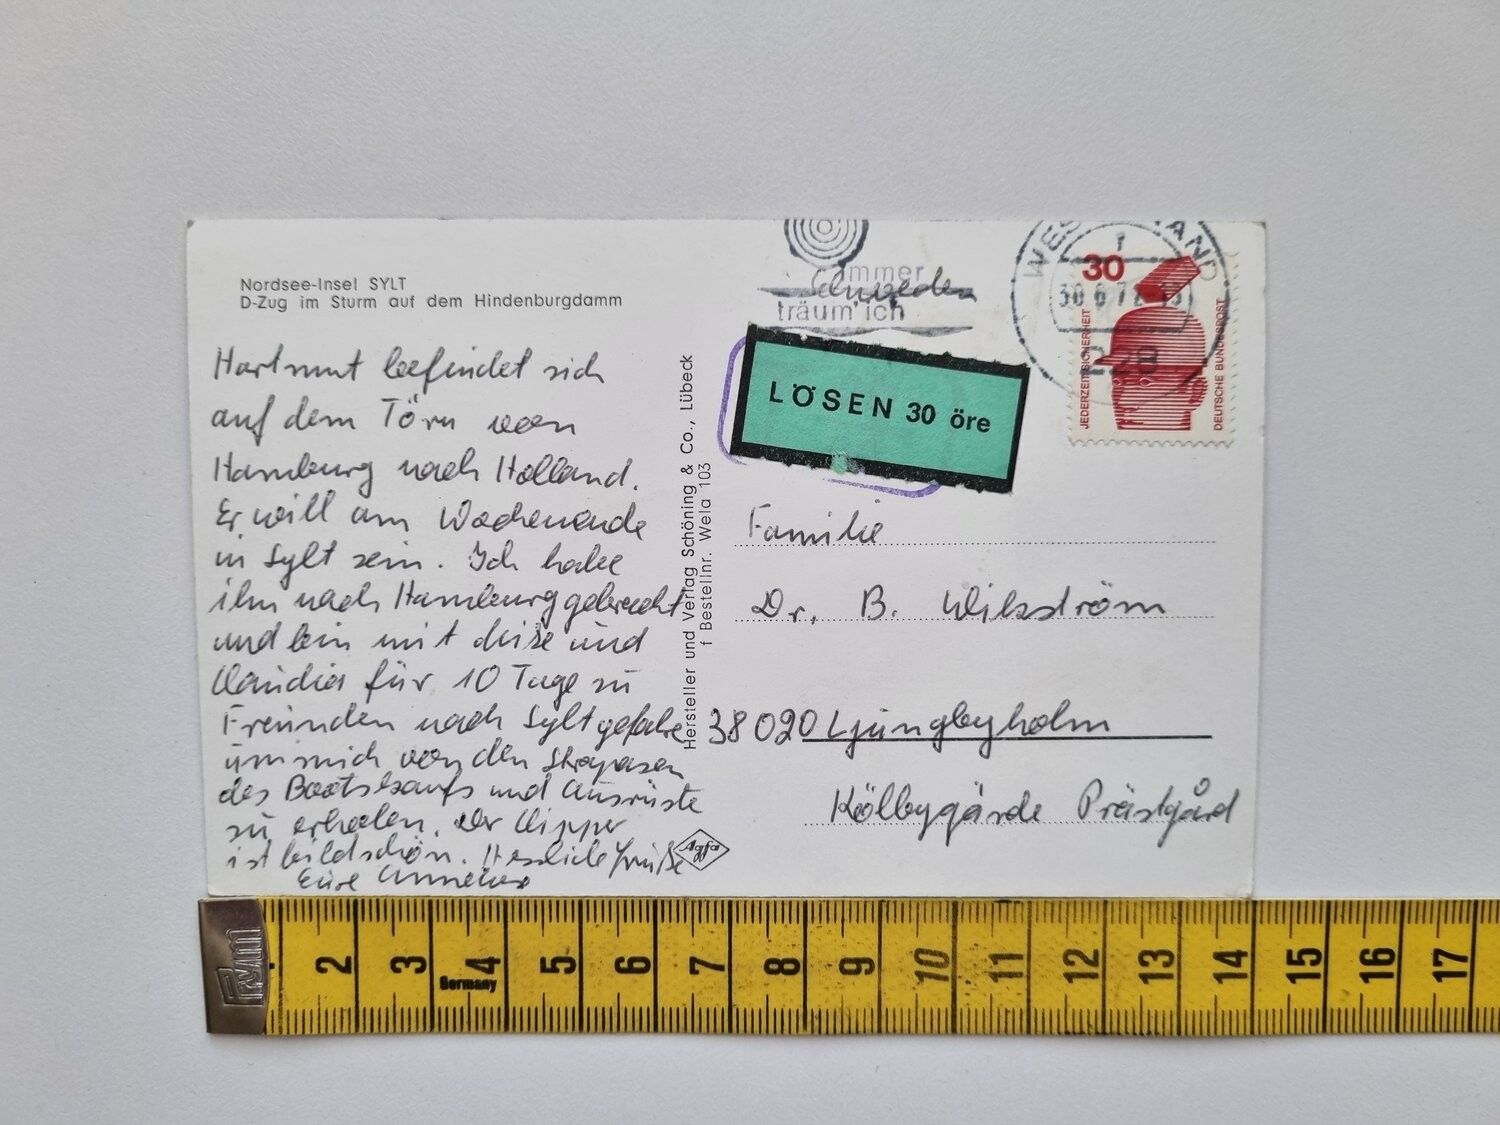 Nordsee-Insel SYLT
D-Zug im Sturm auf dem Hindenburgdamm
Hartmut befindet sich
auf dem Törn von
Hamburg nach Holland.
Er will am Wochenende
in Sylt sein. Ich habe
ihn nach Hamburg gebracht
und bin mit und
Claudia für 10 Tage zu
Freunden nach Sylt gefahre
um mich von den Strapazen
des Bootskaufs und Ausrüste
zu erholen. Der Klipper
ist bildschön. Herzliche Grüße
Eure Annelies
Hersteller und Verlag Schöning & Co., Lübeck
f Bestellnr. Wela 103
Agfa
immer
Schweden
träum' ich
WESTERLAND
1
30.6.72
228
30
JEDERZEIT SICHERHEIT
DEUTSCHE BUNDESPOST
LÖSEN 30 öre
Familie
Dr. B. Wikström
38020 Ljungbyholm
Källbygärde Prästgård
Prym
2 3 4 5 6 7 8 9 10 11 12 13 14 15 16 17
Germany